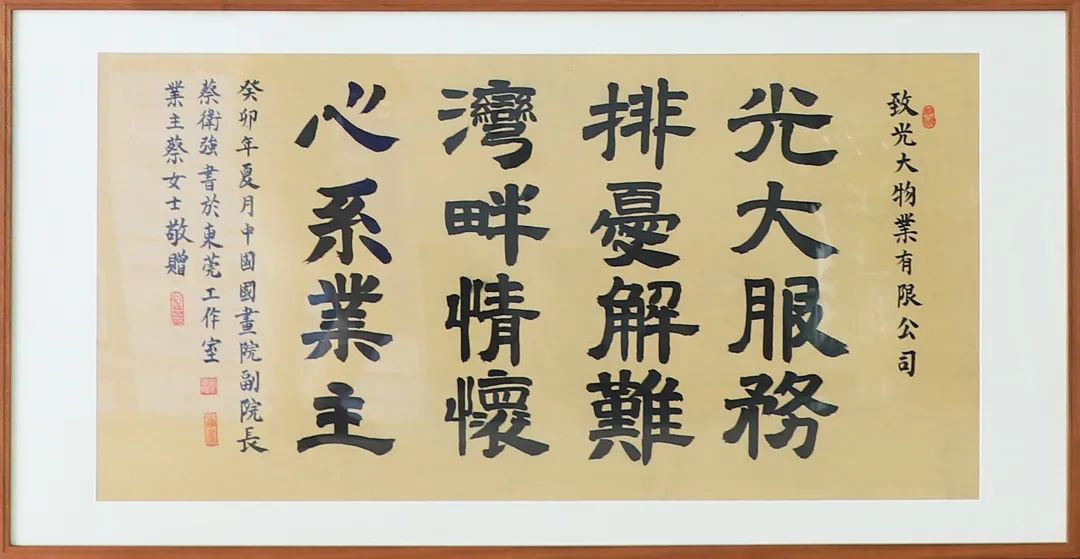 致光大物業有限公司
光大服務
排憂解難
灣畔情懷
心系業主
癸卯年夏月中国國畫院副院長
蔡衛強書於東莞工作室
業主蔡女士敬贈